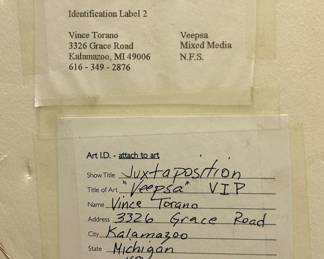 Identification Label 2
Vince Torano Veepsa
3326 Grace Road Mixed Media
Kalamazoo, MI 49006 N.F.S.
616 - 349 - 2876
Art I.D. - attach to art
Show Title Juxtaposition
Title of Art "Veepsa" VIP
Name Vince Torano
Address 3326 Grace Road
City Kalamazoo
State Michigan